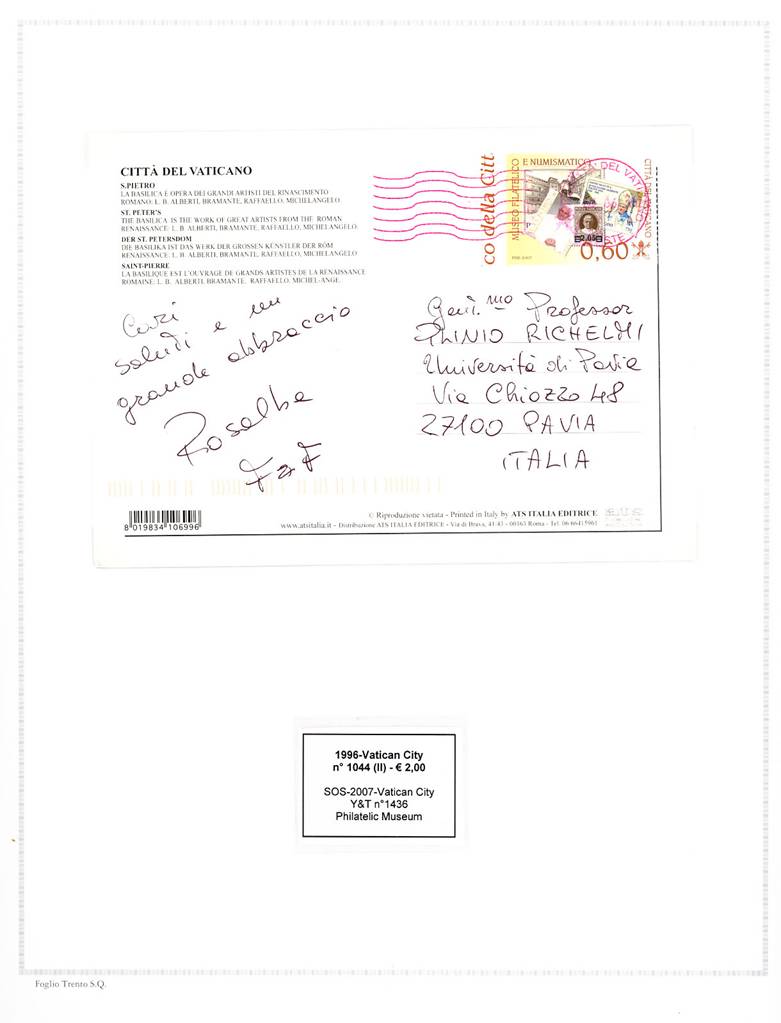 CITTÀ DEL VATICANO
S.PIETRO
LA BASILICA È OPERA DEI GRANDI ARTISTI DEL RINASCIMENTO
ROMANO: L. B. ALBERTI, BRAMANTE, RAFFAELLO, MICHELANGELO.
ST. PETER'S
THE BASILICA IS THE WORK OF GREAT ARTISTS FROM THE ROMAN
RENAISSANCE: L. B. ALBERTI, BRAMANTE, RAFFAELLO, MICHELANGELO.
DER ST. PETERSDOM
DIE BASILIKA IST DAS WERK DER GROSSEN KÜNSTLER DER RÖM
RENAISSANCE: L. B. ALBERTI, BRAMANTE, RAFFAELLO, MICHELANGELO
SAINT-PIERRE
LA BASILIQUE EST L'OUVRAGE DE GRANDS ARTISTES DE LA RENAISSANCE
ROMAINE: L. B. ALBERTI, BRAMANTE, RAFFAELLO, MICHEL-ANGE.
co della Citt
MUSEO FILATELICO
E NUMISMATICO
CITTÀ DEL VATICANO
0,60
DEL VAT
STE
Cari
saluti e un
grande abbraccio
Rosalba
Gent.mo Professor
PLINIO RICHELMI
Università di Pavia
Via Chiozzo 48
27100 PAVIA
ITALIA
8 019834 106996
© Riproduzione vietata - Printed in Italy by ATS ITALIA EDITRICE
www.atsitalia.it - Distribuzione ATS ITALIA EDITRICE - Via di Brava, 41-43 - 00163 Roma - Tel. 06 66415961
1996-Vatican City
n° 1044 (II) - € 2,00
SOS-2007-Vatican City
Y&T n°1436
Philatelic Museum
Foglio Trento S.Q.